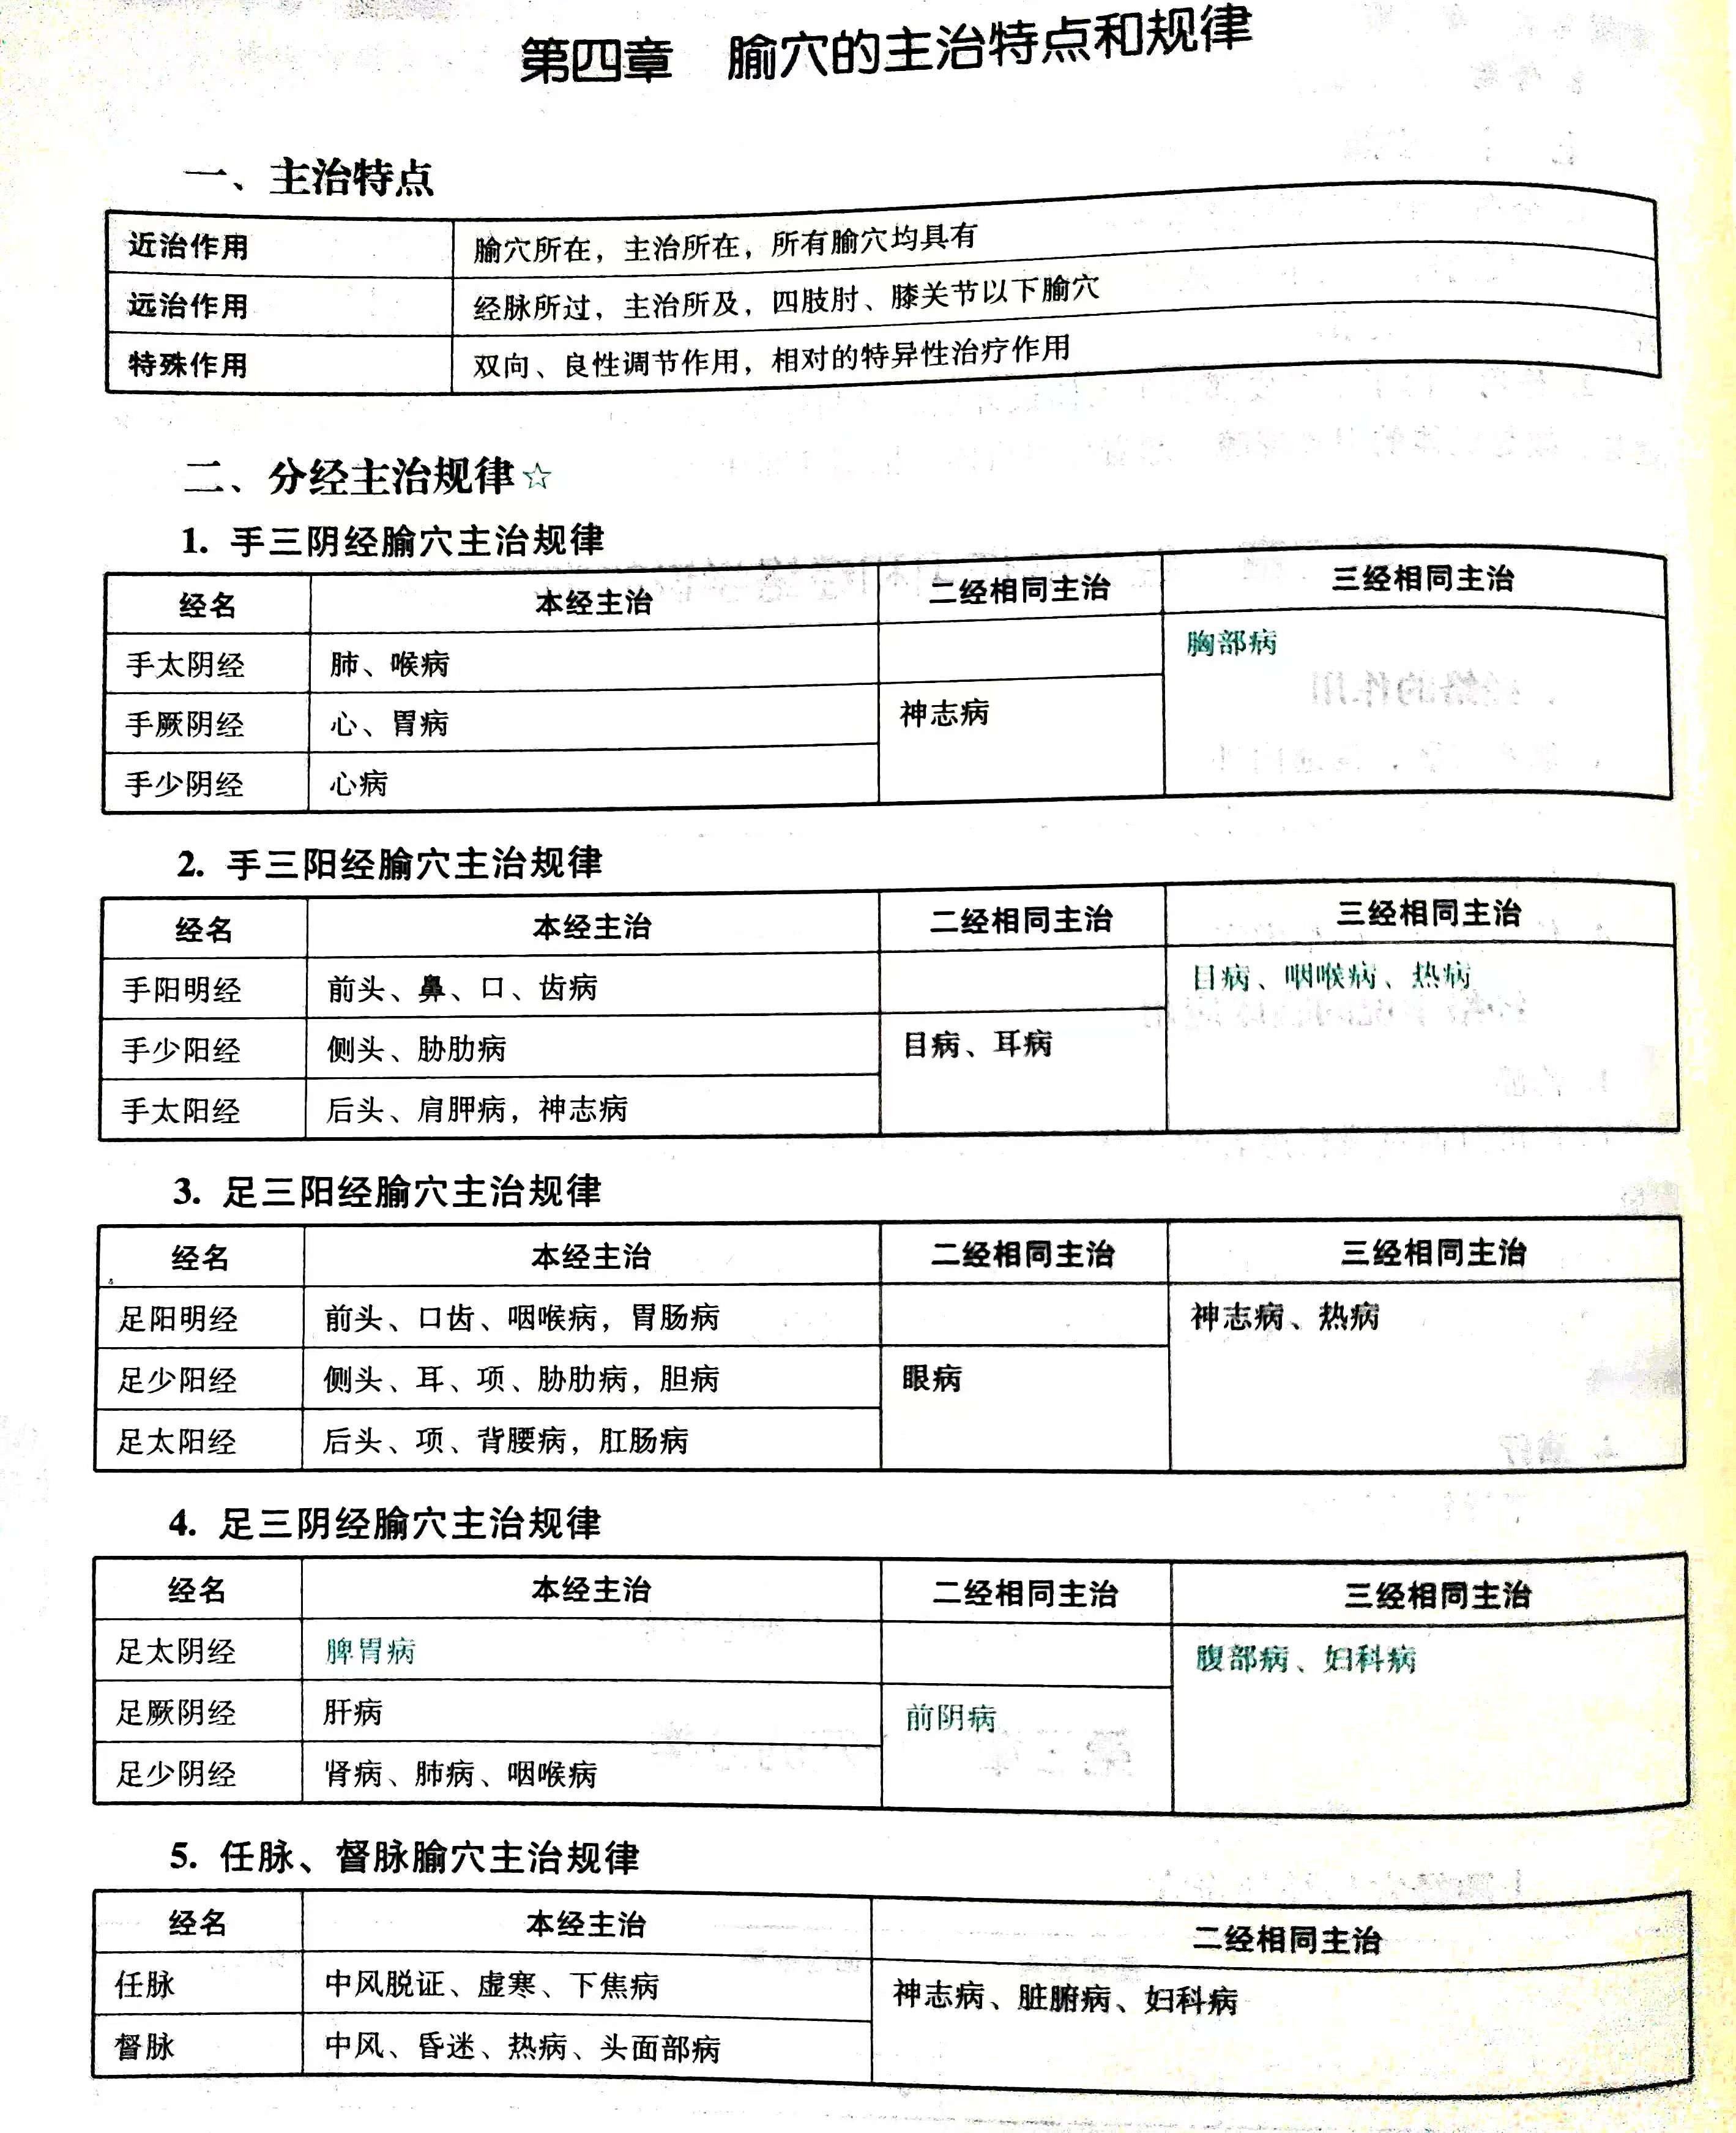 第四章 腧穴的主治特点和规律
一、主治特点
近治作用 腧穴所在，主治所在，所有腧穴均具有
远治作用 经脉所过，主治所及，四肢肘、膝关节以下腧穴
特殊作用 双向、良性调节作用，相对的特异性治疗作用
二、分经主治规律☆
1. 手三阴经腧穴主治规律
经名 本经主治 二经相同主治 三经相同主治
手太阴经 肺、喉病 胸部病
手厥阴经 心、胃病 神志病
手少阴经 心病
2. 手三阳经腧穴主治规律
经名 本经主治 二经相同主治 三经相同主治
手阳明经 前头、鼻、口、齿病 目病、咽喉病、热病
手少阳经 侧头、胁肋病 目病、耳病
手太阳经 后头、肩胛病，神志病
3. 足三阳经腧穴主治规律
经名 本经主治 二经相同主治 三经相同主治
足阳明经 前头、口齿、咽喉病，胃肠病 神志病、热病
足少阳经 侧头、耳、项、胁肋病，胆病 眼病
足太阳经 后头、项、背腰病，肛肠病
4. 足三阴经腧穴主治规律
经名 本经主治 二经相同主治 三经相同主治
足太阴经 脾胃病 腹部病、妇科病
足厥阴经 肝病 前阴病
足少阴经 肾病、肺病、咽喉病
5. 任脉、督脉腧穴主治规律
经名 本经主治 二经相同主治
任脉 中风脱证、虚寒、下焦病 神志病、脏腑病、妇科病
督脉 中风、昏迷、热病、头面部病